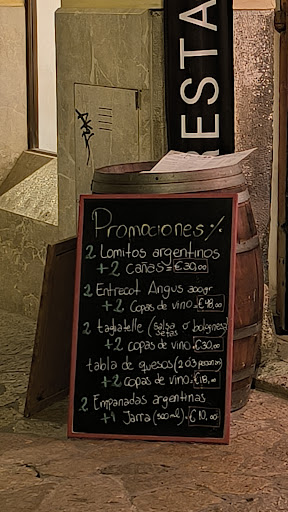 RESTA
Promociones ·/.
2 Lomitos argentinos
+2 cañas = €30,00
2 Entrecot Angus 300gr
+2 Copas de vino = €48,00
2 tagiatelle (salsa setas or bolognesa)
+2 copas de vino = €30,00
tabla de quesos (2 ó 3 personas)
+2 copas de vino = €18,00
2 Empanadas argentinas
+1 Jarra (500ml) = €10,00